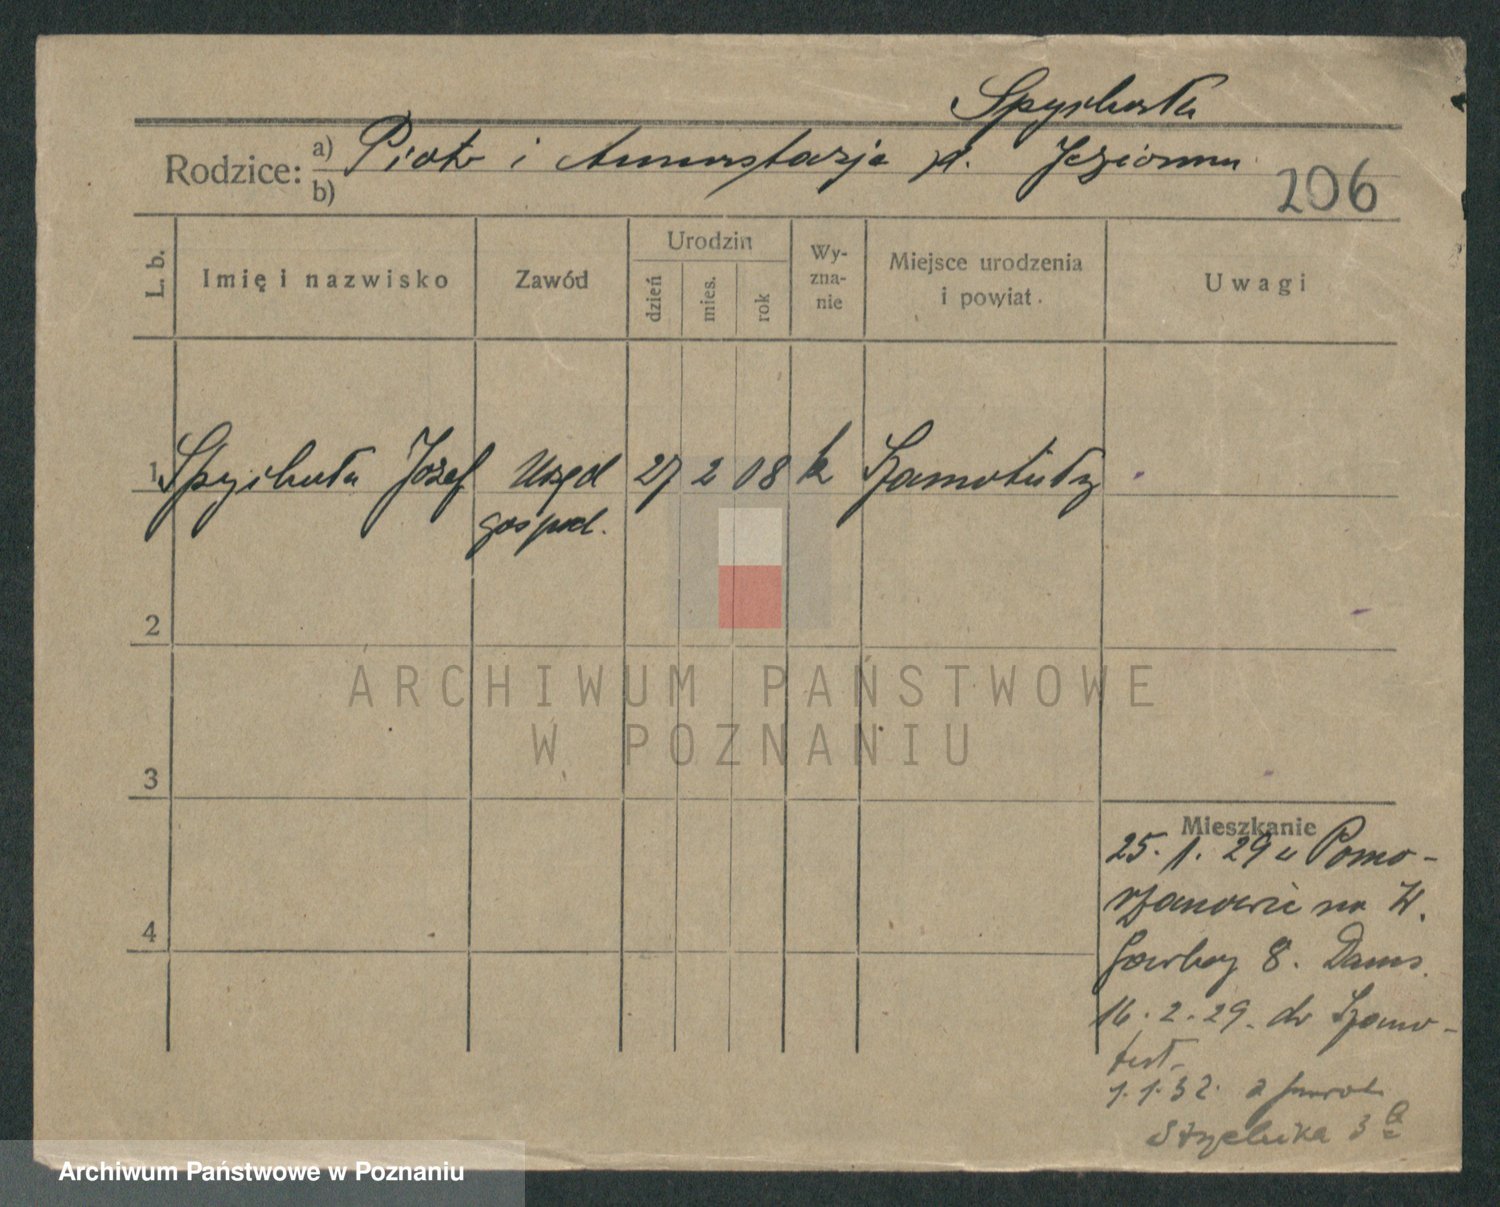 Spychała
Rodzice: a) Piotr i Anastazja d. Jeziorna
b)
206
L. b. Imię i nazwisko Zawód Urodzin dzień mies. rok Wy-zna-nie Miejsce urodzenia i powiat. Uwagi
1 Spychała Józef Urzęd 27 2 08 k Szamotuły
gospod.
2
3
4
Mieszkanie
25. 1. 29 z Pomo-
rzanowic na W.
Garbary 8.
16. 2. 29. do Szamo-
tuł.
1.1.32. z powrot.
Strzelecka 3
ARCHIWUM PAŃSTWOWE
W POZNANIU
Archiwum Państwowe w Poznaniu